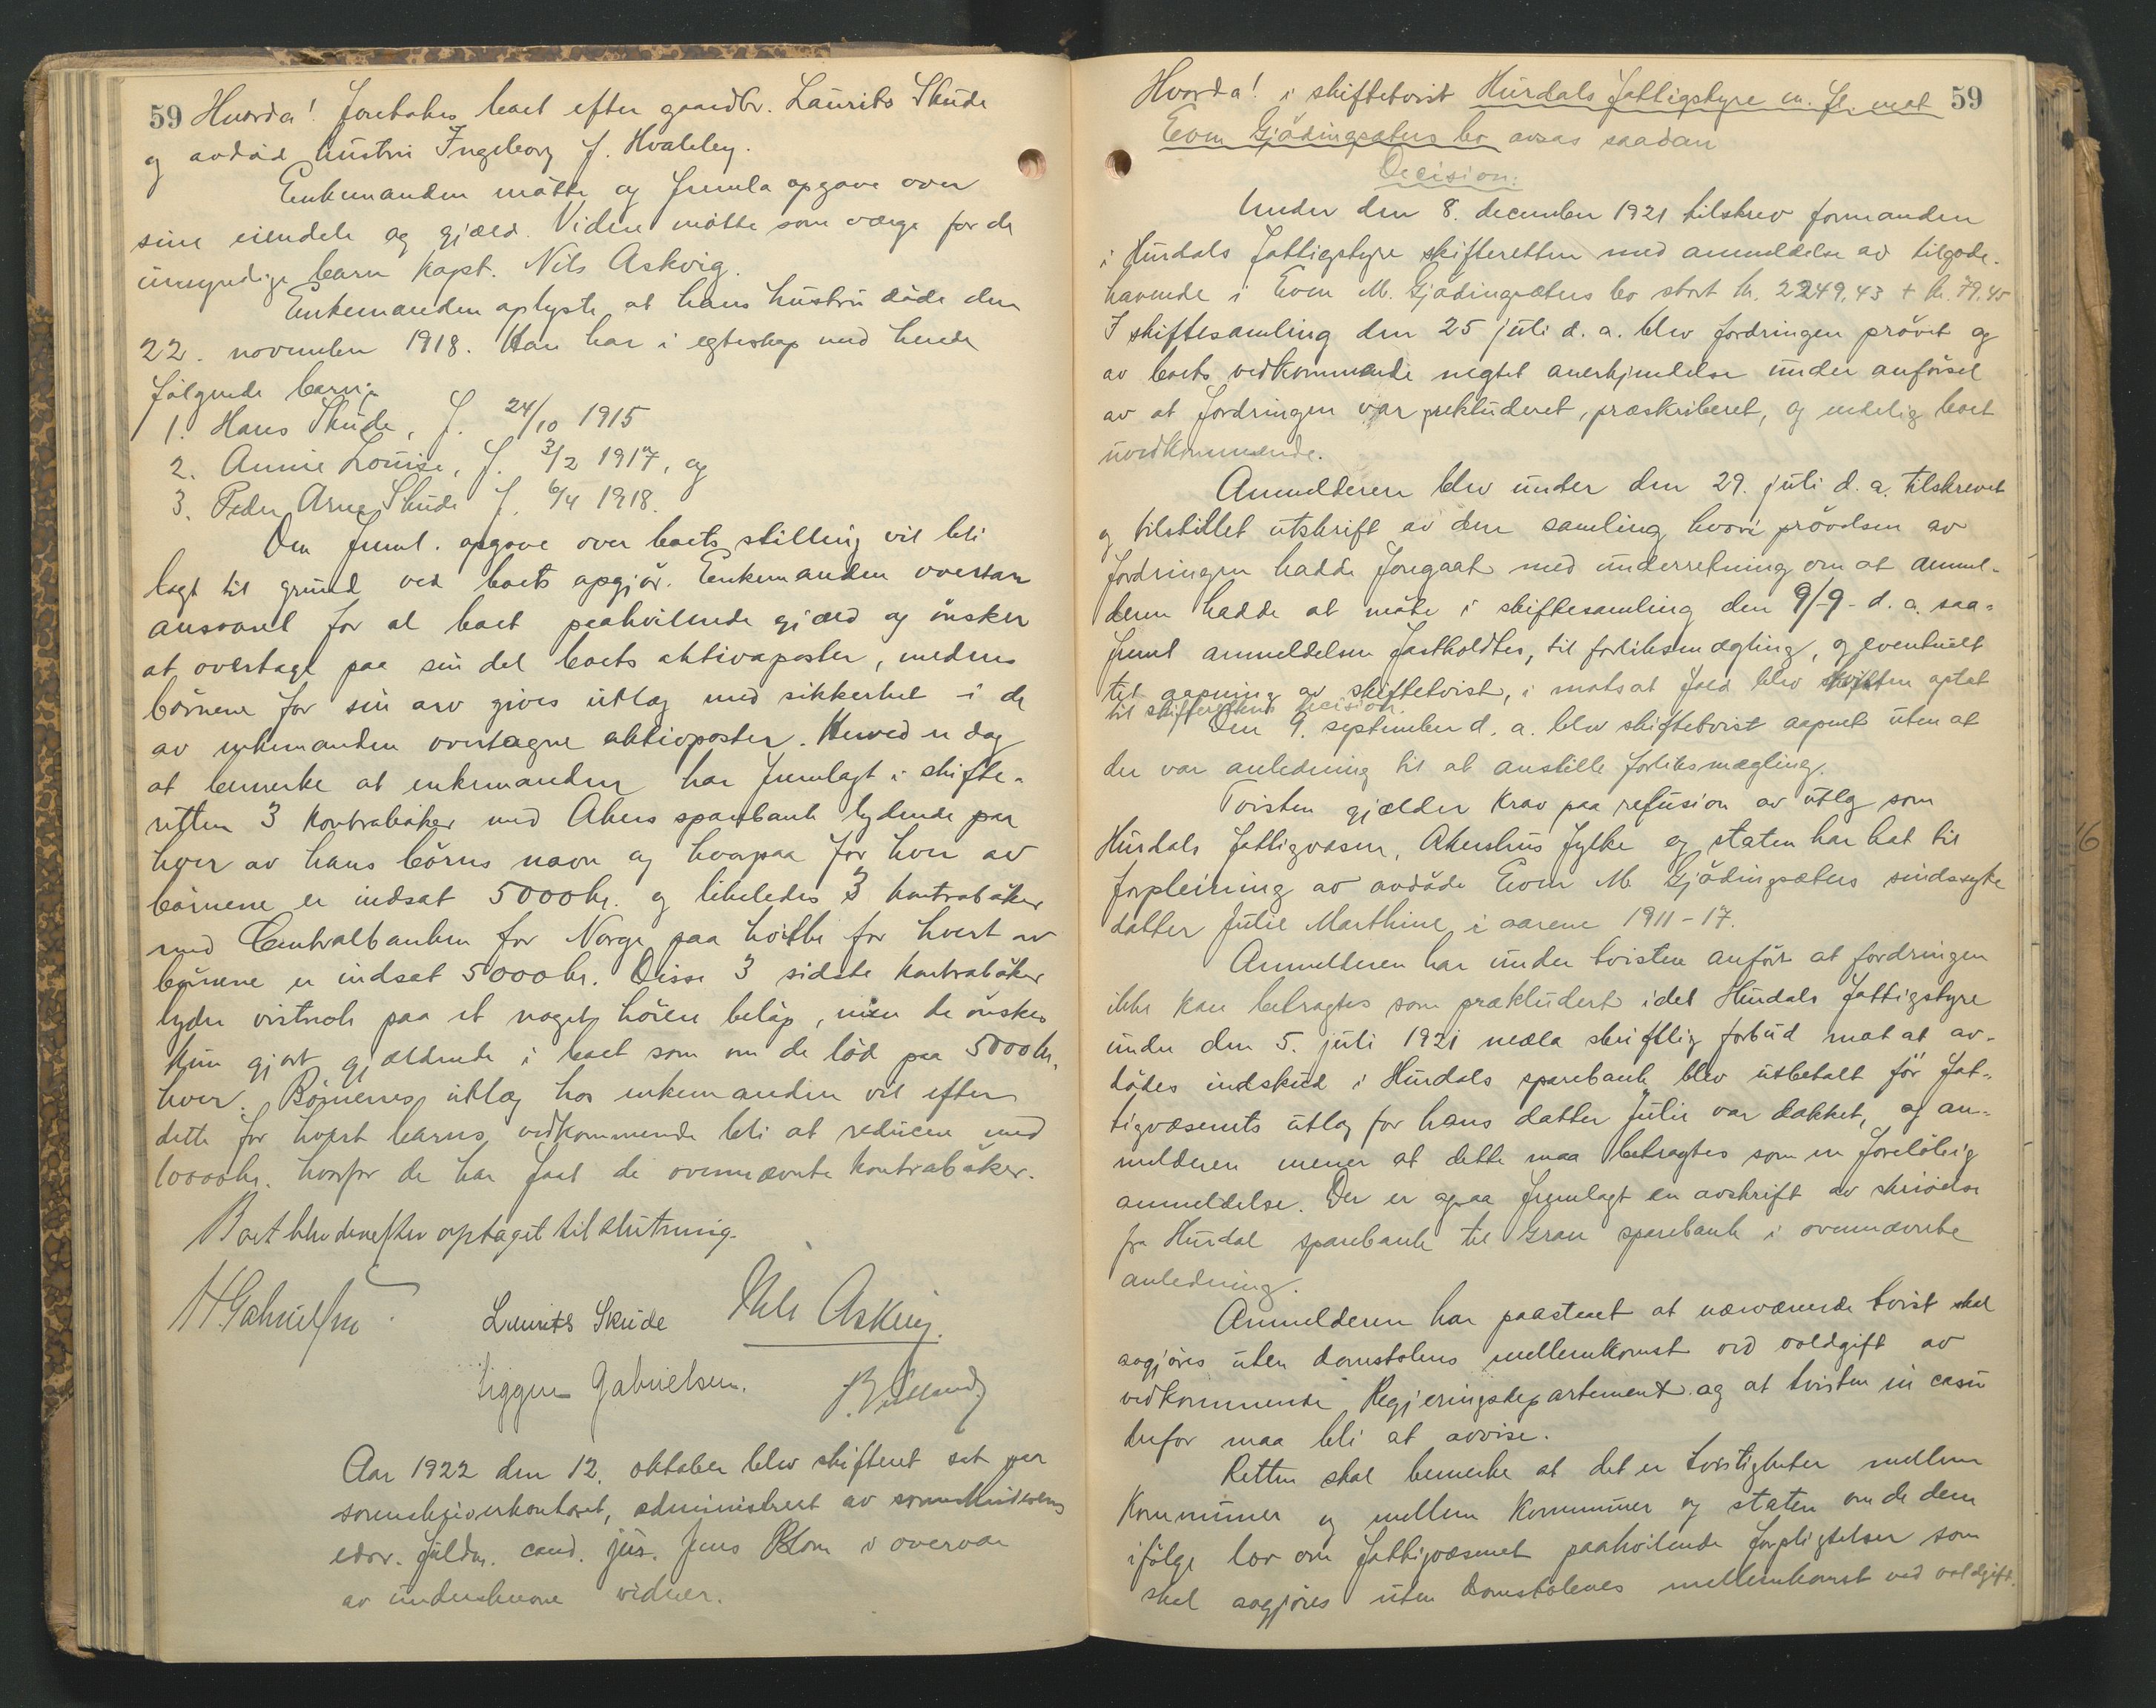 59 Hvorda! Foretokes boet efter gaardbr. Laurits Skude
og avdöd hustru Ingeborg f. Hvaleby.
Enkemanden mötte og fremla opgave over
sine eiendele og gjæld. Videre mötte som verge for de
umyndige barn kapt. Nils Askvig.
Enkemanden oplyste at hans hustru döde den
22. november 1918. Han har i egteskap med hende
fölgende barn:
1. Hans Skude, f. 24/10 1915
2. Annie Louise, f. 3/2 1917, og
3. Peder Arne Skude f. 6/4 1918.
Den freml. opgave over boets stilling vil bli
lagt til grund ved boets opgjör. Enkemanden overtar
ansvaret for al boet paahvilende gjæld og önsker
at overtage paa sin del boets aktivaposter, medens
börnene for sin arv gives utlæg med sikkerhet i de
av enkemanden overtagne aktivposter. Herved er dog
at bemerke at enkemanden har fremlagt i skifte-
retten 3 kontraböker med Akers sparebank lydende paa
hver av hans börns navn og hvorpaa for hver av
börnene er indsat 5000 kr. og likeledes 3 kontraböker
med Centralbanken for Norge paa hvilke for hvert av
börnene er indsat 5000 kr. Disse 3 sidste kontraböker
lyder vistnok paa et noget höiere belöp, men de önskes
kun gjort gjældende i boet som om de löd paa 5000 kr.
hver. Börnenes utlæg hos enkemanden vil efter
dette for hvert barns vedkommende bli at reducere med
10000 kr. hvorfor de har faat de ovennævnte kontraböker.
Boet blev derefter optaget til slutning.
H Gabrielsen Laurits Skude Nils Askvig.
Sigger Gabrielsen.
Aar 1922 den 12. oktober blev skifteret sat paa
sorenskriverkontoret, administrert av sorenskriverens
edsv. fuldm. cand. jur. Jens Blom i overvær
av underskrevne vidner.
Hvorda! i skiftetvist Hurdals Fattigstyre m. fl. mot 59
Even Gjödingsæters bo avsas saadan
Decision:
Under den 8. december 1921 tilskrev formanden
i Hurdals Fattigstyre skifteretten med anmeldelse av tilgode-
havende i Even M. Gjödingsæters bo stort kr. 2249,43 + kr. 79,45
I skiftesamling den 25 juli d. a. blev fordringen prövet og
av boets vedkommende negtet anerkjendelse under anförsel
av at fordringen var prekluderet, præskriberet, og endelig boet
uvedkommende.
Anmelderen blev under den 29. juli d. a. tilskrevet
og tilstillet utskrift av den samling hvori prövelsen av
fordringen hadde foregaat med underretning om at anmel-
deren hadde at möte i skiftesamling den 9/-9- d. a. saa-
fremt anmeldelsen fastholdtes, til forliksmægling, og eventuelt
til aapning av skiftetvist, i motsat fald blev tvisten optat
til skifterettens decision.
Den 9. september d. a. blev skiftetvist aapnet uten at
der var anledning til at anstille forliksmægling.
Tvisten gjælder krav paa refusion av utlæg som
Hurdals fattigvæsen, Akershus fylke og staten har hat til
forpleining av avdöde Even M. Gjödingsæters sindssyke
datter Julie Marthine i aarene 1911-17.
Anmelderen har under tvisten anfört at fordringen
ikke kan betragtes som prækludert idet Hurdals fattigstyre
under den 5. juli 1921 nedla skriftlig forbud mot at av-
dödes indskud i Hurdals sparebank blev utbetalt för fat-
tigvæsenets utlæg for hans datter Julie var dækket, og an-
melderen mener at dette maa betragtes som en forelöbig
anmeldelse. Der er ogsaa fremlagt en avskrift av skrivelse
fra Hurdal sparebank til Gran sparebank i ovennævnte
anledning.
Anmelderen har paastaaet at nærværende tvist skal
avgjöres uten domstolens mellemkomst ved voldgift av
vedkommende Regjeringsdepartement og at tvisten in casu
derfor maa bli at avvise.
Retten skal bemerke at det er tvistigheter mellem
Kommuner og mellem Kommuner og staten om de dem
ifölge lov om Fattigvæsenet paahvilende forpligtelser som
skal avgjöres uten domstolenes mellemkomst ved voldgift.
16